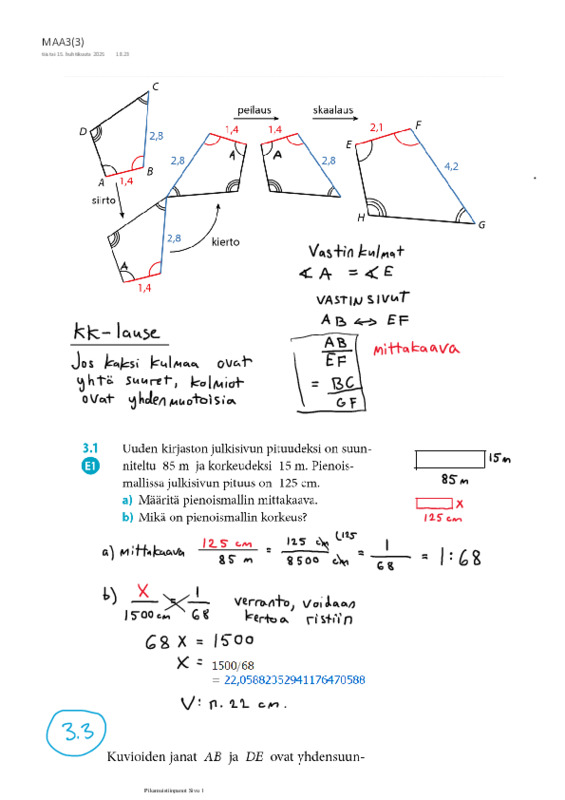 MAA3(3)
C
peilaus
skaalaus
D
2,8
1,4
1,4
2,1
F
E
A
A
B
2,8
2,8
4,2
A
1,4
siirto
H
G
2,8
kierto
A
1,4
Vastinkulmat
∢ A = ∢ E
VASTINSIVUT
AB ↔ EF
AB
EF
= BC
GF
mittakaava
KK-lause
Jos kaksi kulmaa ovat
yhtä suuret, kolmiot
ovat yhdenmuotoisia
3.1 Uuden kirjaston julkisivun pituudeksi on suun-
E1 niteltu 85 m ja korkeudeksi 15 m. Pienois-
mallissa julkisivun pituus on 125 cm.
a) Määritä pienoismallin mittakaava.
b) Mikä on pienoismallin korkeus?
15 m
85 m
x
125 cm
a) mittakaava 125 cm / 85 m = 125 cm / 8500 cm (125 = 1 / 68 = 1:68
b) x / 1500 cm = 1 / 68 verranto, voidaan
kertoa ristiin
68 x = 1500
x = 1500/68
= 22,05882352941176470588
V: n. 22 cm.
3.3
Kuvioiden janat AB ja DE ovat yhdensuun-